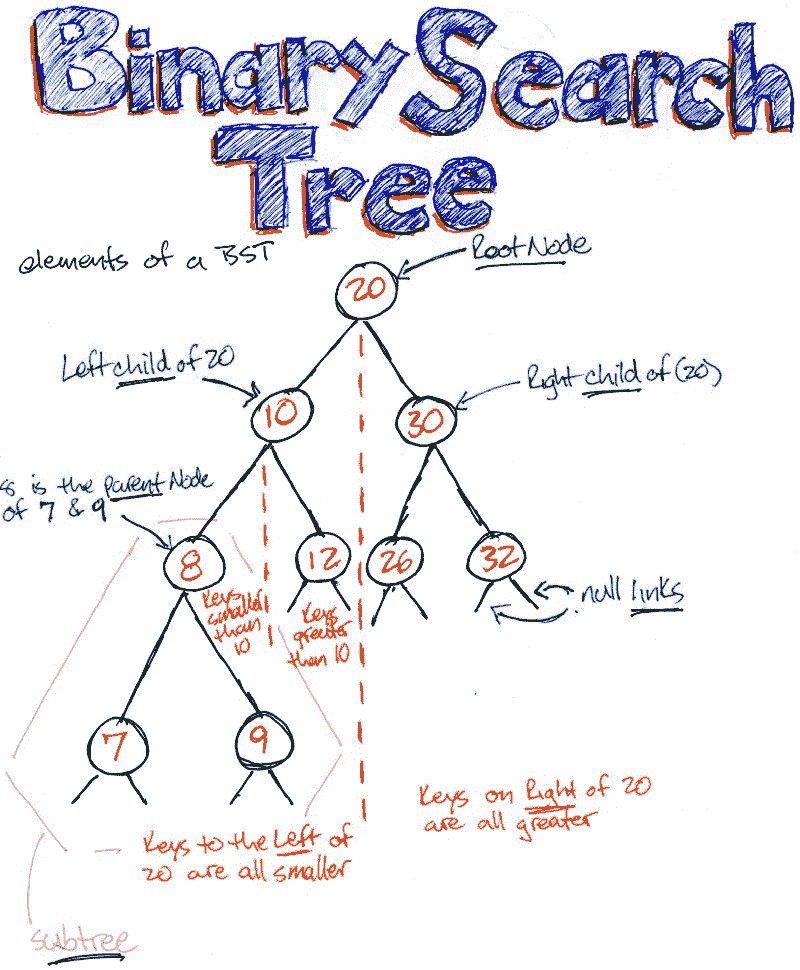 Binary Search
Tree
elements of a BST
Root Node
20
Left child of 20
Right child of (20)
10
30
8 is the parent Node
of 7 & 9
8
12
26
32
keys
smaller
than
10
keys
greater
than 10
null links
7
9
Keys on Right of 20
are all greater
Keys to the Left of
20 are all smaller
subtree